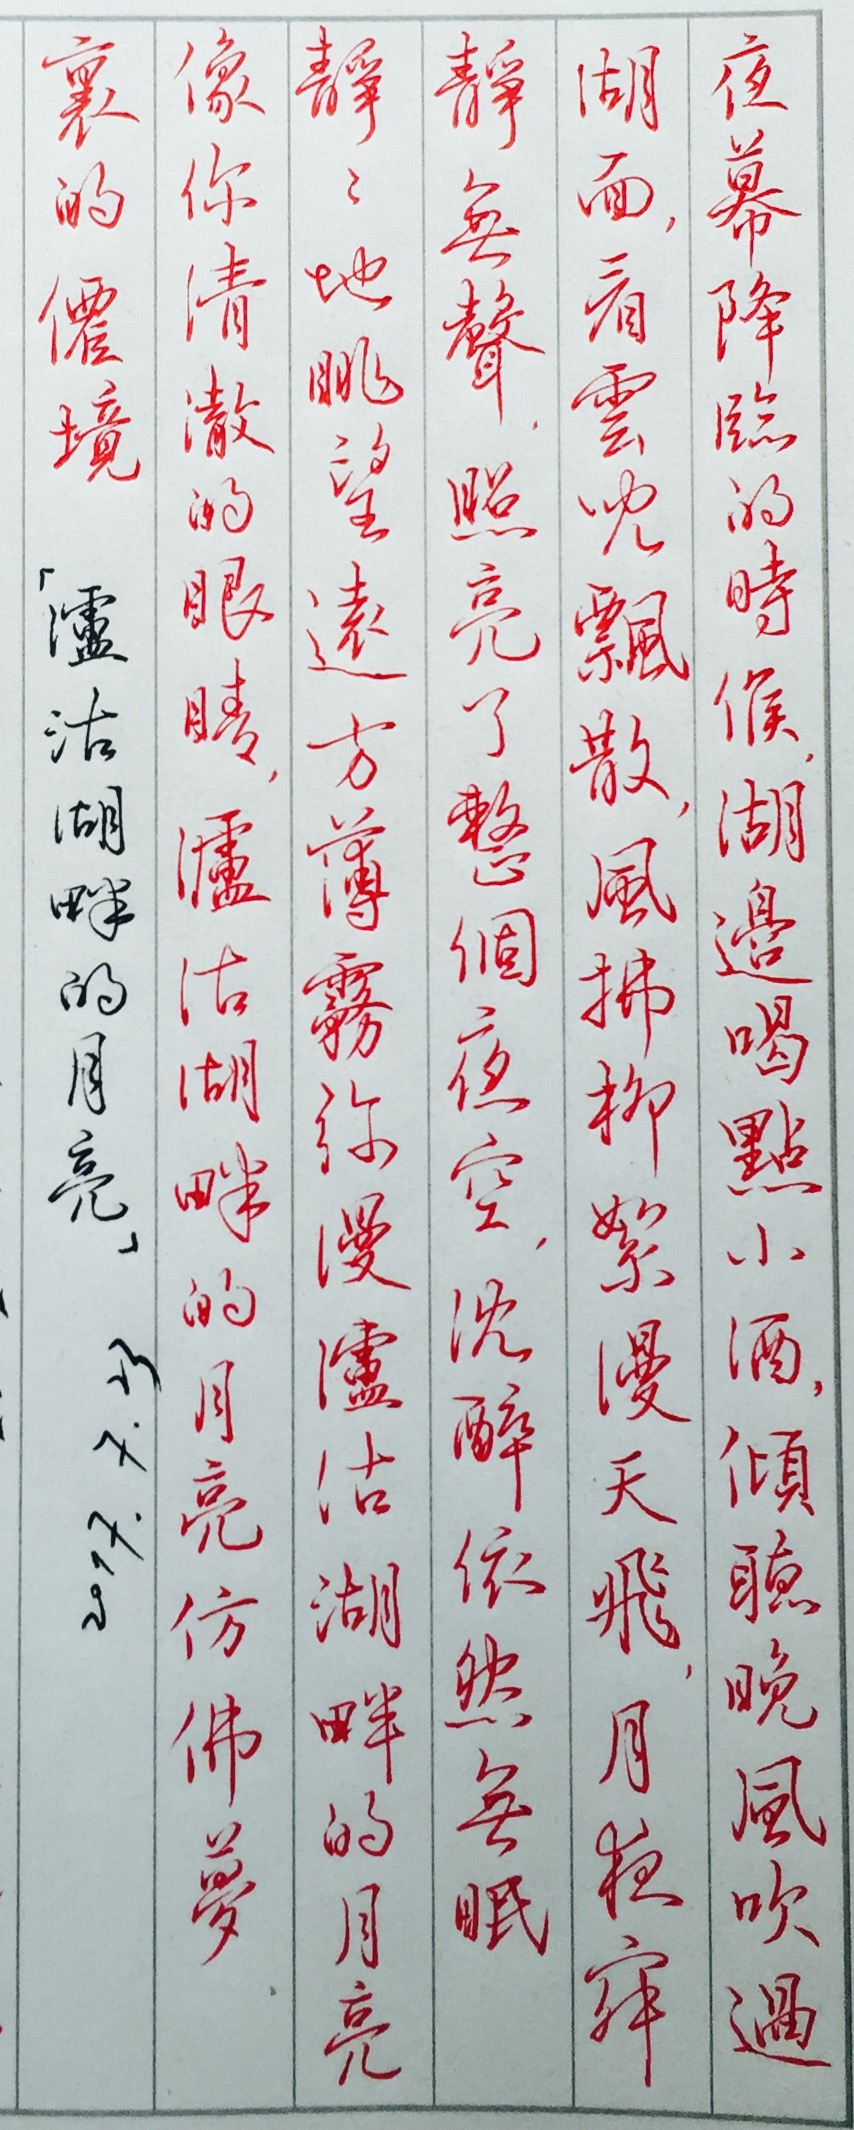 夜幕降臨的時候,湖邊喝點小酒,傾聽晚風吹過
湖面,看雲吹飄散,風拂柳絮漫天飛,月夜寂
靜無聲,照亮了整個夜空,沈醉依然無眠
靜々地眺望遠方薄霧彌漫瀘沽湖畔的月亮
像你清澈的眼睛,瀘沽湖畔的月亮仿佛夢
裏的僊境 「瀘沽湖畔的月亮」 2017.7.23